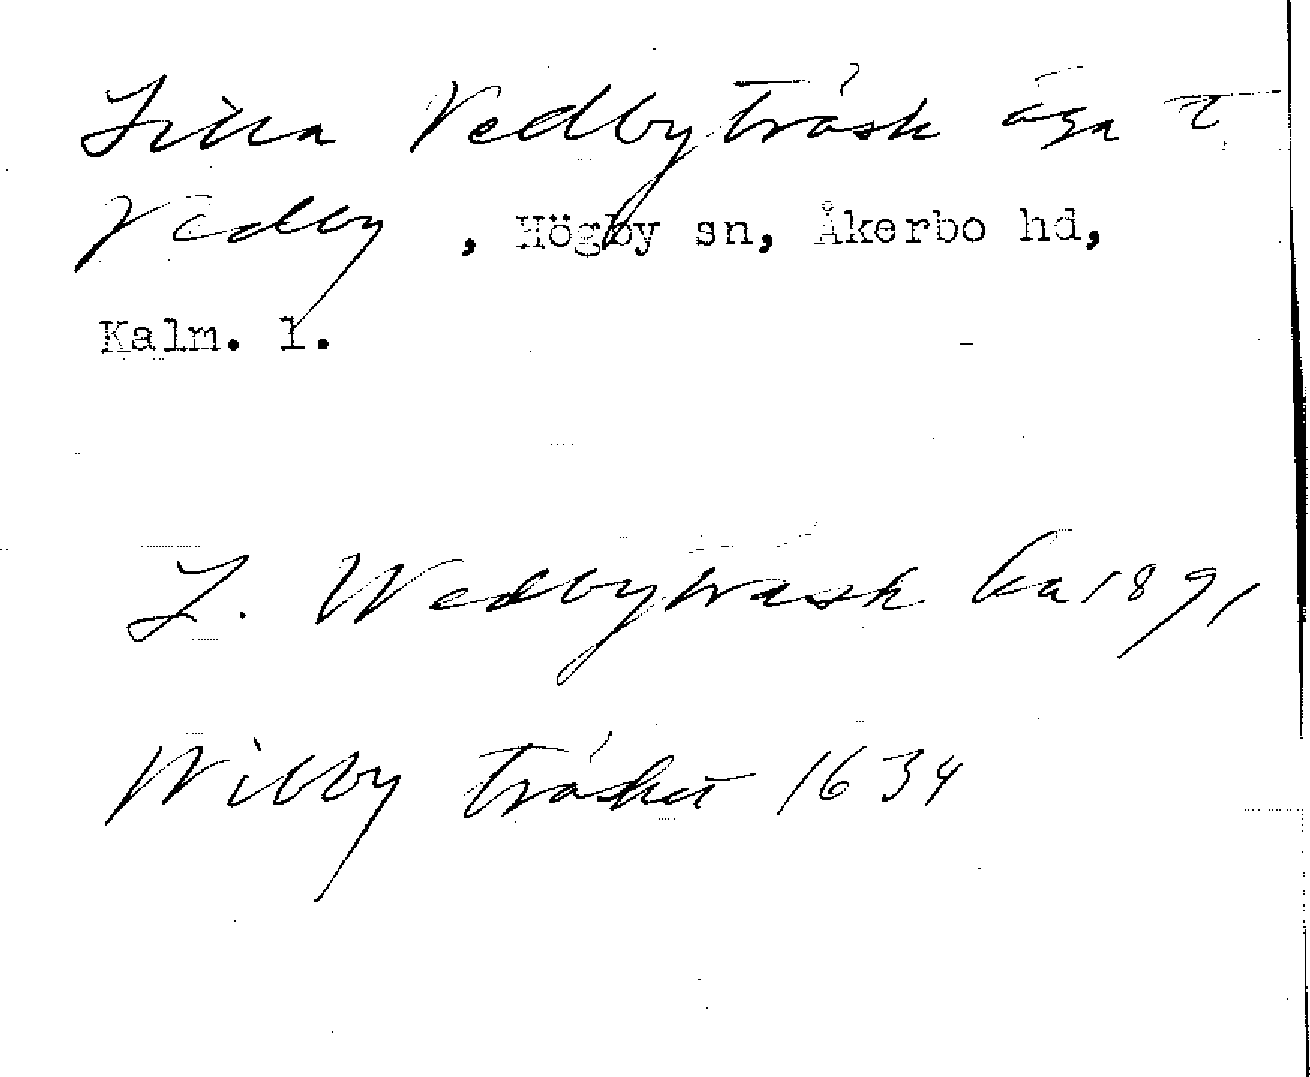 Lilla Vedbyträsk äga t
Vedby, Högby sn, Åkerbo hd,
Kalm. l.
L. Wedbyträsk ka 1891
Wibby träsket 1634